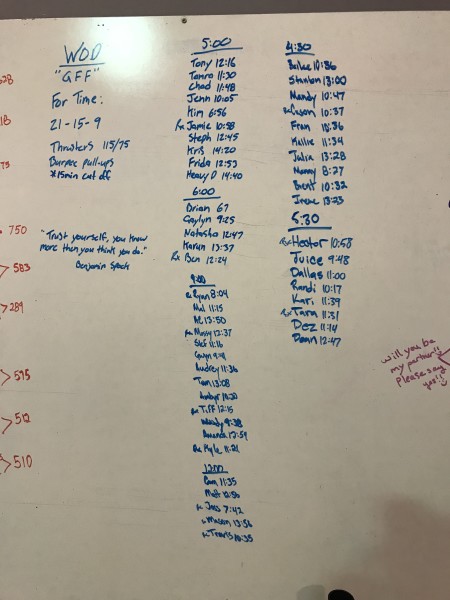 WOD
"GFF"
For Time:
21-15-9
Thrusters 115/75
Burpee pull-ups
*15min cut off
"Trust yourself, you know
more then you think you do."
Benjamin Spock
5:00
Tony 12:16
Tamra 11:30
Chad 11:48
Jenn 10:05
Kim 6:56
Rx Jamie 10:58
Steph 12:45
Kris 14:20
Frida 12:53
Heavy D 14:40
6:00
Brian 67
Gaylyn 9:25
Natasha 12:47
Karen 13:37
Rx Ben 12:24
9:00
Rx Ryan 8:04
Mal 11:15
13:50
Rx Missy 12:37
Stef 11:16
Audrey 11:36
Tom 13:08
Rx Tiff 12:15
Mandy 9:38
Amanda 13:59
Rx Kyle 11:21
12:00
Cam 11:35
Matt 12:50
Jess 7:42
Mason 13:56
Travis
4:30
10:36
Stanton 13:00
Mandy 10:47
Rx Cason 10:37
Fran
Kallie 11:34
Julia 13:28
Manny 8:27
Brent 10:32
Irene 13:23
5:30
Rx Hector 10:58
Juice 9:48
Dallas 11:00
Randi 10:17
Kari 11:39
Rx Tara 11:31
Dez 11:14
Dann 12:47
will you be
my partner!!
Please say
yes!!
628
750
583
289
575
512
510